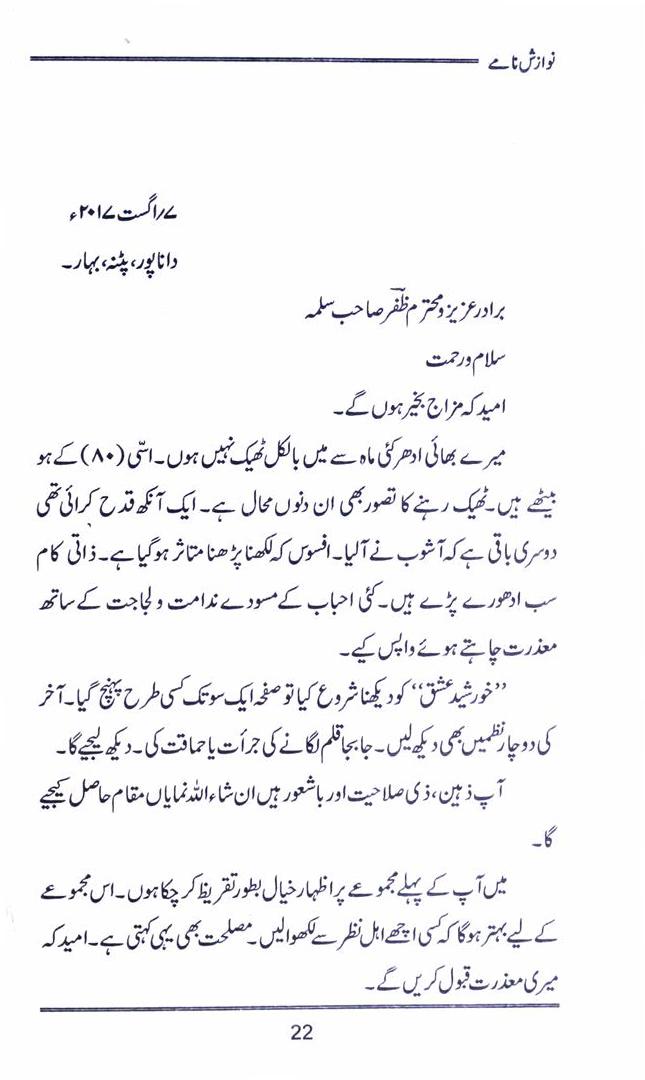 نوازش نامے
۷/اگست ۲۰۱۷ء
داناپور، پٹنہ، بہار۔
برادر عزیز و محترم ظفؔر صاحب سلمہ
سلام و رحمت
امید کہ مزاج بخیر ہوں گے۔
میرے بھائی ادھر کئی ماہ سے میں بالکل ٹھیک نہیں ہوں۔ اسّی (۸۰) کے ہو
بیٹھے ہیں۔ ٹھیک رہنے کا تصور بھی ان دنوں محال ہے۔ ایک آنکھ قدح کرائی تھی
دوسری باقی ہے کہ آشوب نے آلیا۔ افسوس کہ لکھنا پڑھنا متاثر ہوگیا ہے۔ ذاتی کام
سب ادھورے پڑے ہیں۔ کئی احباب کے مسودے ندامت و لجاجت کے ساتھ
معذرت چاہتے ہوئے واپس کیے۔
’’خورشید عشق‘‘ کو دیکھنا شروع کیا تو صفحہ ایک سو تک کسی طرح پہنچ گیا۔ آخر
کی دو چار نظمیں بھی دیکھ لیں۔ جا بجا قلم لگانے کی جرأت یا حماقت کی۔ دیکھ لیجیے گا۔
آپ ذہین، ذی صلاحیت اور باشعور ہیں ان شاء اللہ نمایاں مقام حاصل کیجیے
گا۔
میں آپ کے پہلے مجموعے پر اظہار خیال بطور تقریظ کر چکا ہوں۔ اس مجموعے
کے لیے بہتر ہوگا کہ کسی اچھے اہل نظر سے لکھوا لیں۔ مصلحت بھی یہی کہتی ہے۔ امید کہ
میری معذرت قبول کریں گے۔
22